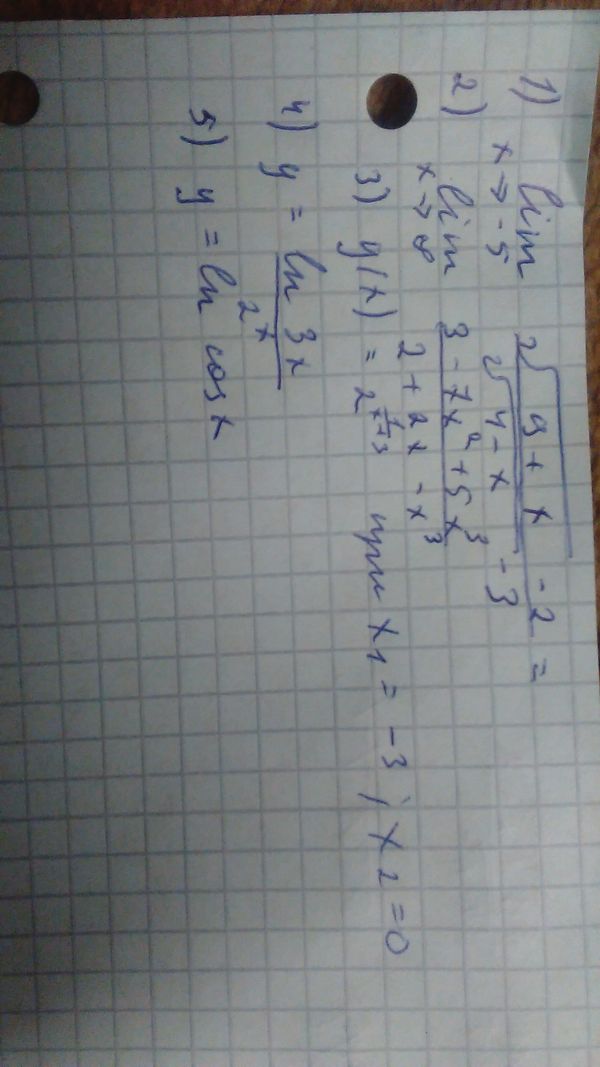 1) lim x→-5 (²√(9 + x) - 2) / (²√(4 - x) - 3) =
2) lim x→∞ (3 - 7x² + 5x³) / (2 + 2x - x³)
3) y(x) = 2^(1/(x+3)) при x₁ = -3 ; x₂ = 0
4) y = ln 3x / 2ˣ
5) y = ln cos x